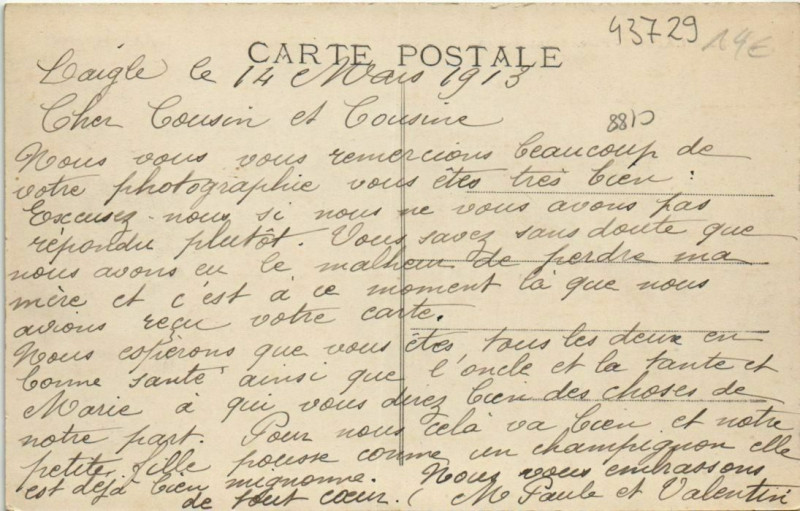 43729 14€
CARTE POSTALE
Laigle le 14 Mars 1913
Cher Cousin et Cousine
8810
Nous vous vous remercions beaucoup de
votre photographie vous êtes très bien :
Excusez-nous si nous ne vous avons pas
répondu plutôt. Vous savez sans doute que
nous avons eu le malheur de perdre ma
mère et c'est à ce moment là que nous
avions reçu votre carte.
Nous espérons que vous êtes tous les deux en
bonne santé ainsi que l'oncle et la tante et
Marie à qui vous direz bien des choses de
notre part. Pour nous celà va bien et notre
petite fille pousse comme un champignon elle
est déjà bien mignonne. Nous vous embrassons
de tout cœur. ( M Paule et Valentin